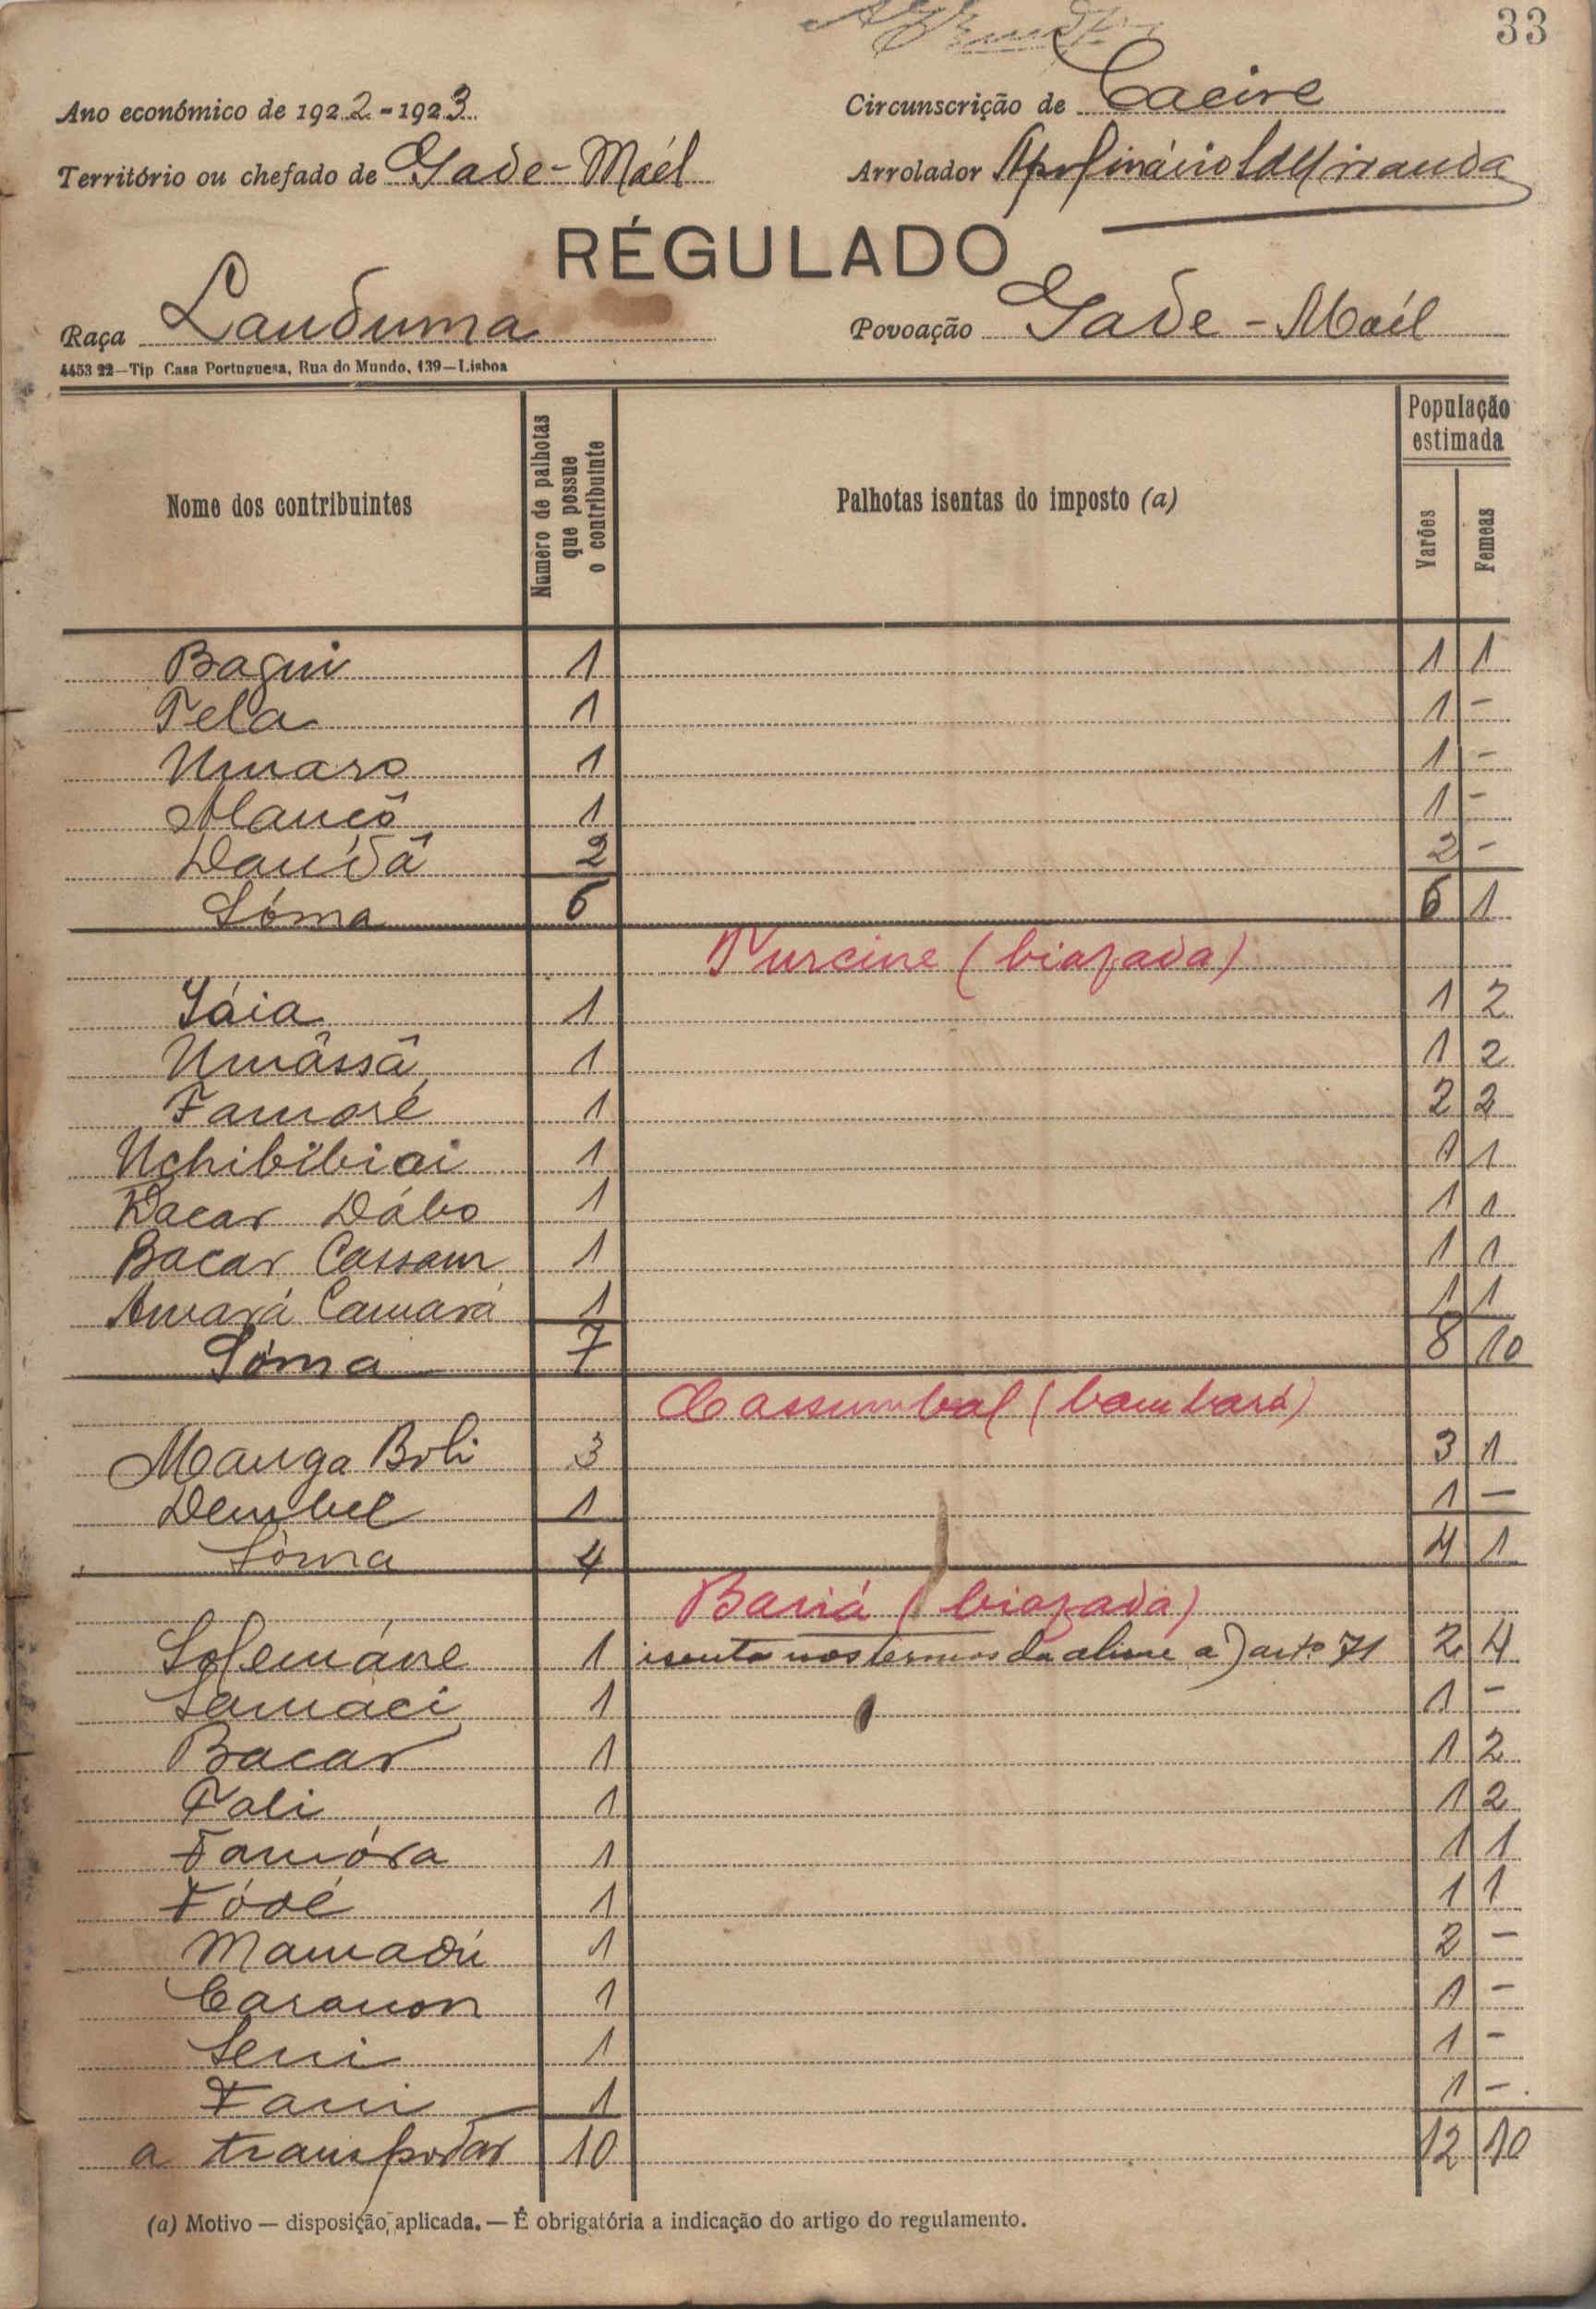 33
Ano económico de 1922-1923 Circunscrição de Cacine
Território ou chefado de Gade-Máél Arrolador Apolinário Miranda
RÉGULADO
Raça Landuma Povoação Gade-Maél
4453 22—Tip Casa Portuguesa, Rua do Mundo, 139—Lisboa
Nome dos contribuintes Numero de palhotas que possue o contribuinte Palhotas isentas do imposto (a) População estimada Varões Femeas
Bagui 1 1 1
Tela 1 1 -
Umaro 1 1 -
Mancô 1 1 -
Daúdâ 2 2 -
Sóma 6 6 1
Nurcine (biafada)
Sáia 1 1 2
Umâssâ 1 1 2
Famoré 1 2 2
Uchibibiai 1 1 1
Dacar Dábo 1 1 1
Bacar Cassam 1 1 1
Amará Camará 1 1 1
Sóma 7 8 10
Cassumbal (bambará)
Manga Boli 3 3 1
Dembel 1 1 -
Sóma 4 4 1
Bariá (biafada)
Solemáne 1 isento nos termos da aline a) artº 71 2 4
Samáci 1 1 -
Bacar 1 1 2
Fali 1 1 2
Famóra 1 1 1
Fódé 1 1 1
Mamadú 1 2 -
Caramon 1 1 -
Seni 1 1 -
Fani 1 1 -
a transportar 10 12 10
(a) Motivo — disposição, aplicada. — É obrigatória a indicação do artigo do regulamento.